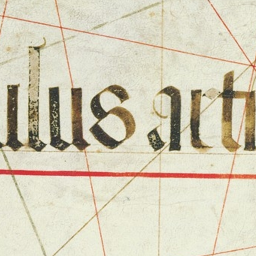 ulus arti